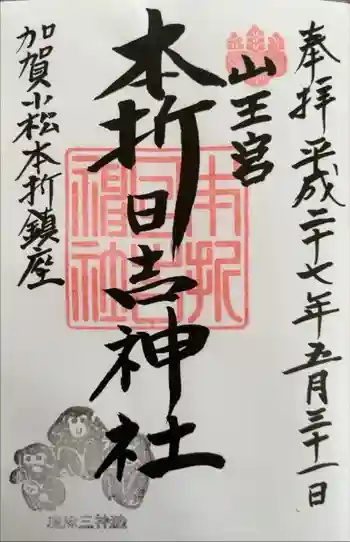 奉拝 平成二十七年五月三十一日
山王宮
本折日吉神社
加賀小松本折鎮座
本折日吉神社
三神猿